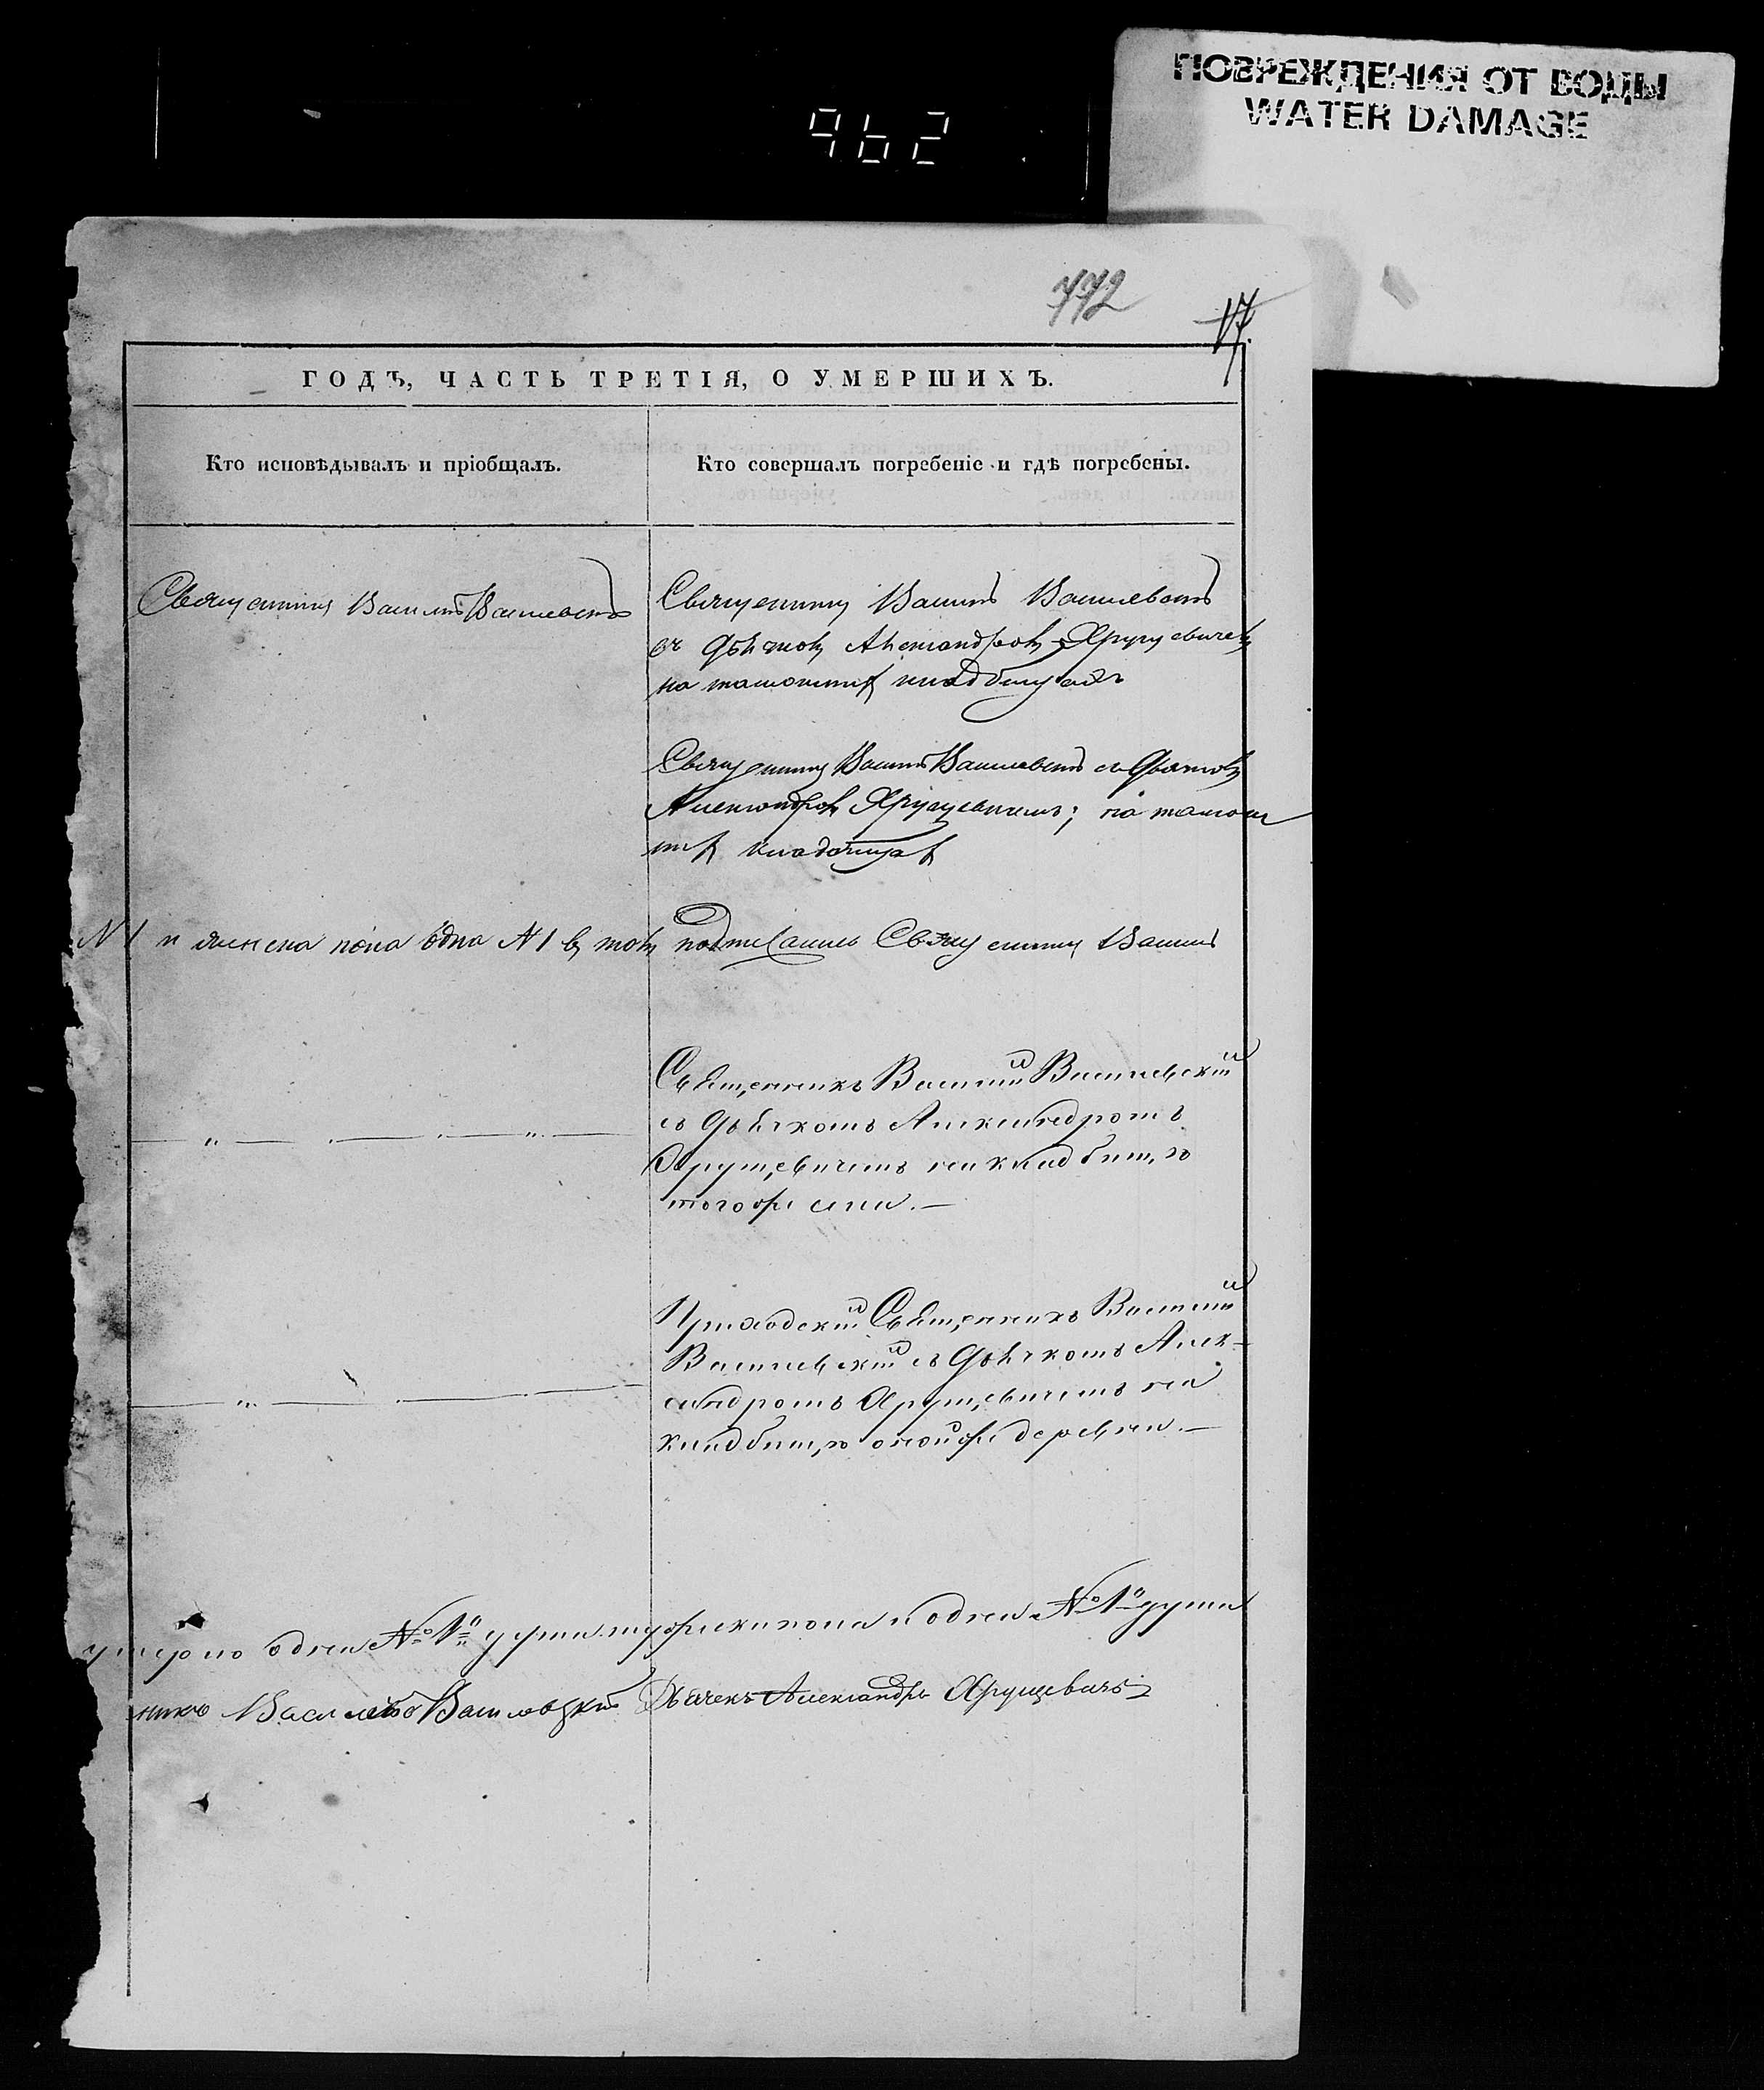 ПОВРЕЖДЕНИЯ ОТ ВОДЫ
WATER DAMAGE
962
772
17.
ГОДЪ, ЧАСТЬ ТРЕТІЯ, О УМЕРШИХЪ.
Кто исповѣдывалъ и пріобщалъ.
Кто совершалъ погребеніе и гдѣ погребены.
Священникъ Василій Василевскій
Священникъ Василій Василевскій
съ Дьячкомъ Александромъ Хрущевичемъ
на кладбищахъ
Священникъ Василій Василевскій съ Дьячкомъ
Александромъ Хрущевичемъ; на
кладбищахъ
N 1 и женска пола одна N 1 въ томъ подписались Священникъ Василій
Священникъ Василій Василевскій
съ Дьячкомъ Александромъ
Хрущевичемъ на кладбищѣ
тогожъ села.—
Приходскій Священникъ Василій
Василевскій съ Дьячкомъ Алек-
сандромъ Хрущевичемъ на
кладбищѣ оной же деревни.—
одна №1 душа мужеска пола и одна №1 душа
никъ Василій Василевскій Дьячекъ Александръ Хрущевичъ